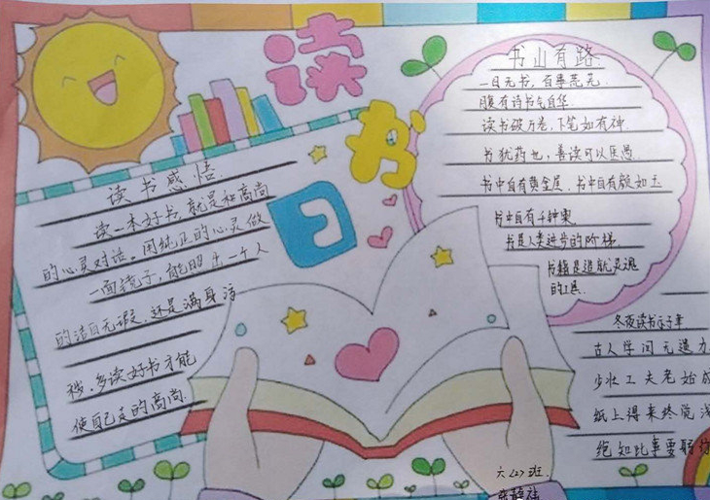 读书日
书山有路
一日无书,百事荒芜.
腹有诗书气自华
读书破万卷.下笔如有神.
书犹药也,善读可以医愚.
书中自有黄金屋.书中自有颜如玉
书中自有千钟粟
书是人类进步的阶梯.
书籍是造就灵魂
的工具.
读书感悟
读一本好书,就是和高尚
的心灵对话。用纯正的心灵做
一面镜子,能照出一个人
的洁白无瑕.还是满身污
秽。多读好书才能
使自己走的高尚.
冬夜读书示子聿
古人学问无遗力
少壮工夫老始成
纸上得来终觉浅
绝知此事要躬
六(2)班.